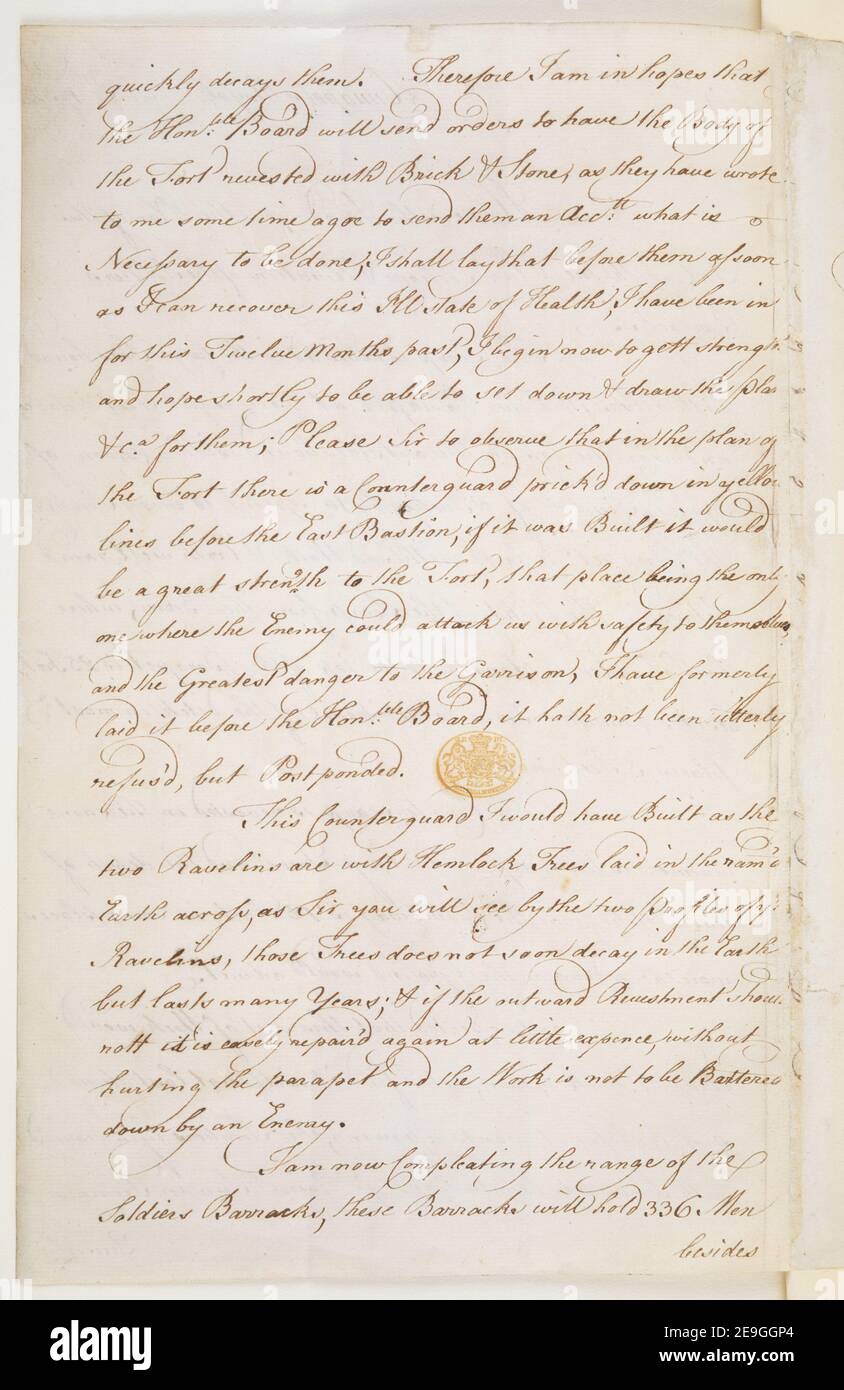 quickly decays them. Therefore I am in hopes that
the Hon.ble Board will send orders to have the Body of
the Fort revested with Brick & Stone, as they have wrote
to me some time agoe to send them an Acc.tt what is
Necessary to be done, I shall lay that before them assoon
as I can recover this Ill state of Health, I have been in
for this Twelve Months past, I begin now to gett streng
and hope shortly to be able to set down & draw the pla
&c.a for them; Please Sir to observe that in the plan of
the Fort there is a Counterguard prick'd down in yello
lines before the East Bastion, if it was Built it would
be a great strength to the Fort, that place being the only
one where the Enemy could attack us with safety to themselves,
and the Greatest danger to the Garrison, I have formerly
laid it before the Hon.ble Board, it hath not been utterly
refus'd, but Postponded.
This Counterguard I would have Built as the
two Ravelins are with Hemlock Trees laid in the ram'd
Earth across, as Sir you will see by the two Profiles of y.e
Ravelins, those Trees does not soon decay in the Earth
but lasts many Years; & if the outward Revestment shou
rott it is easely repair'd again at little expence, without
hurting the parapet and the Work is not to be Battered
down by an Enemy.
I am now Compleating the range of the
Soldiers Barracks, these Barracks will hold 336 Men
besides
alamy
Image ID: 2E9GGP4
www.alamy.com